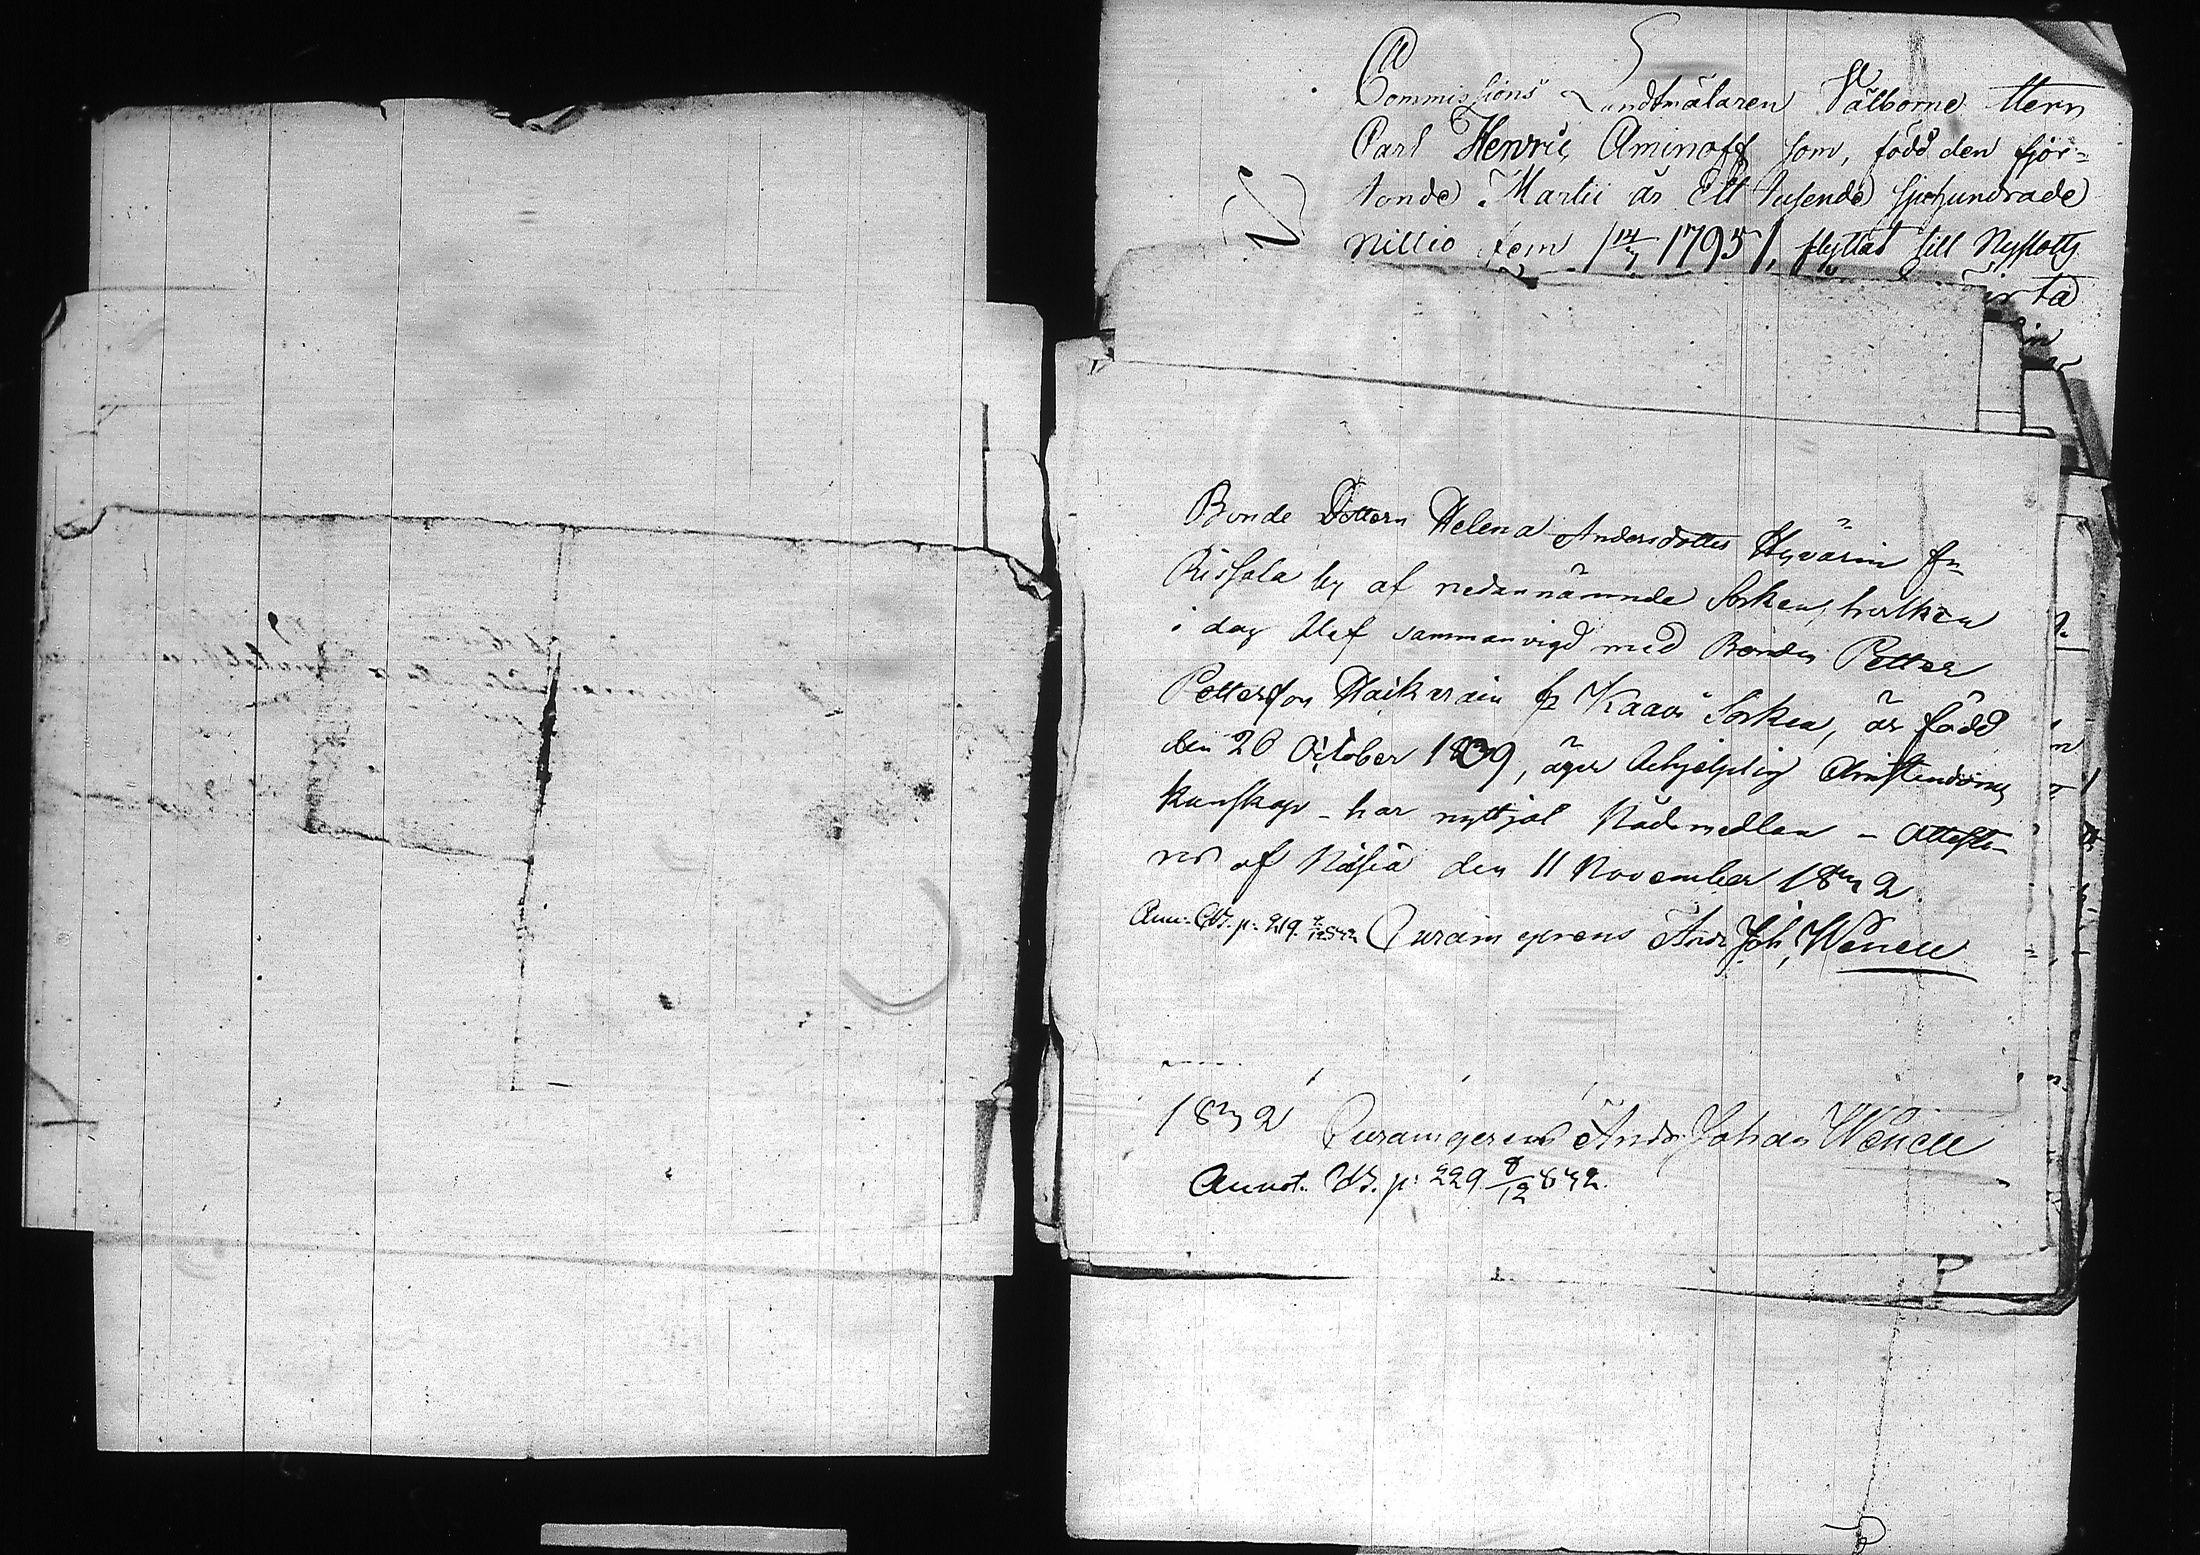 Commissions Landtmätaren Välborne Herr
Carl Henric Aminoff som, född den fjor=
tonde Martii år Ett tusende sjuhundrade
nittio fem 1795, flyttat till Nyslotts
Bonde Dottern Helena Andersdotter Hyvärin fr.
Rissala by af nedannämnde Socken, hvilken
i dag blef sammanvigd med Bonden Petter
Pettersson Haikarain fr Kaavi Socken, är född
den 26 October 1809, äger behjelplig Christendoms
kunskap – har nyttjat Nådemedlen – Atteste-
ras af Nilsiä den 11 November 1842
Ann. p: 219. Curam gerens And: Joh. Wenell
1842 Curam gerens And: Johan Wenell
Annot. p: 229 8/12 842.